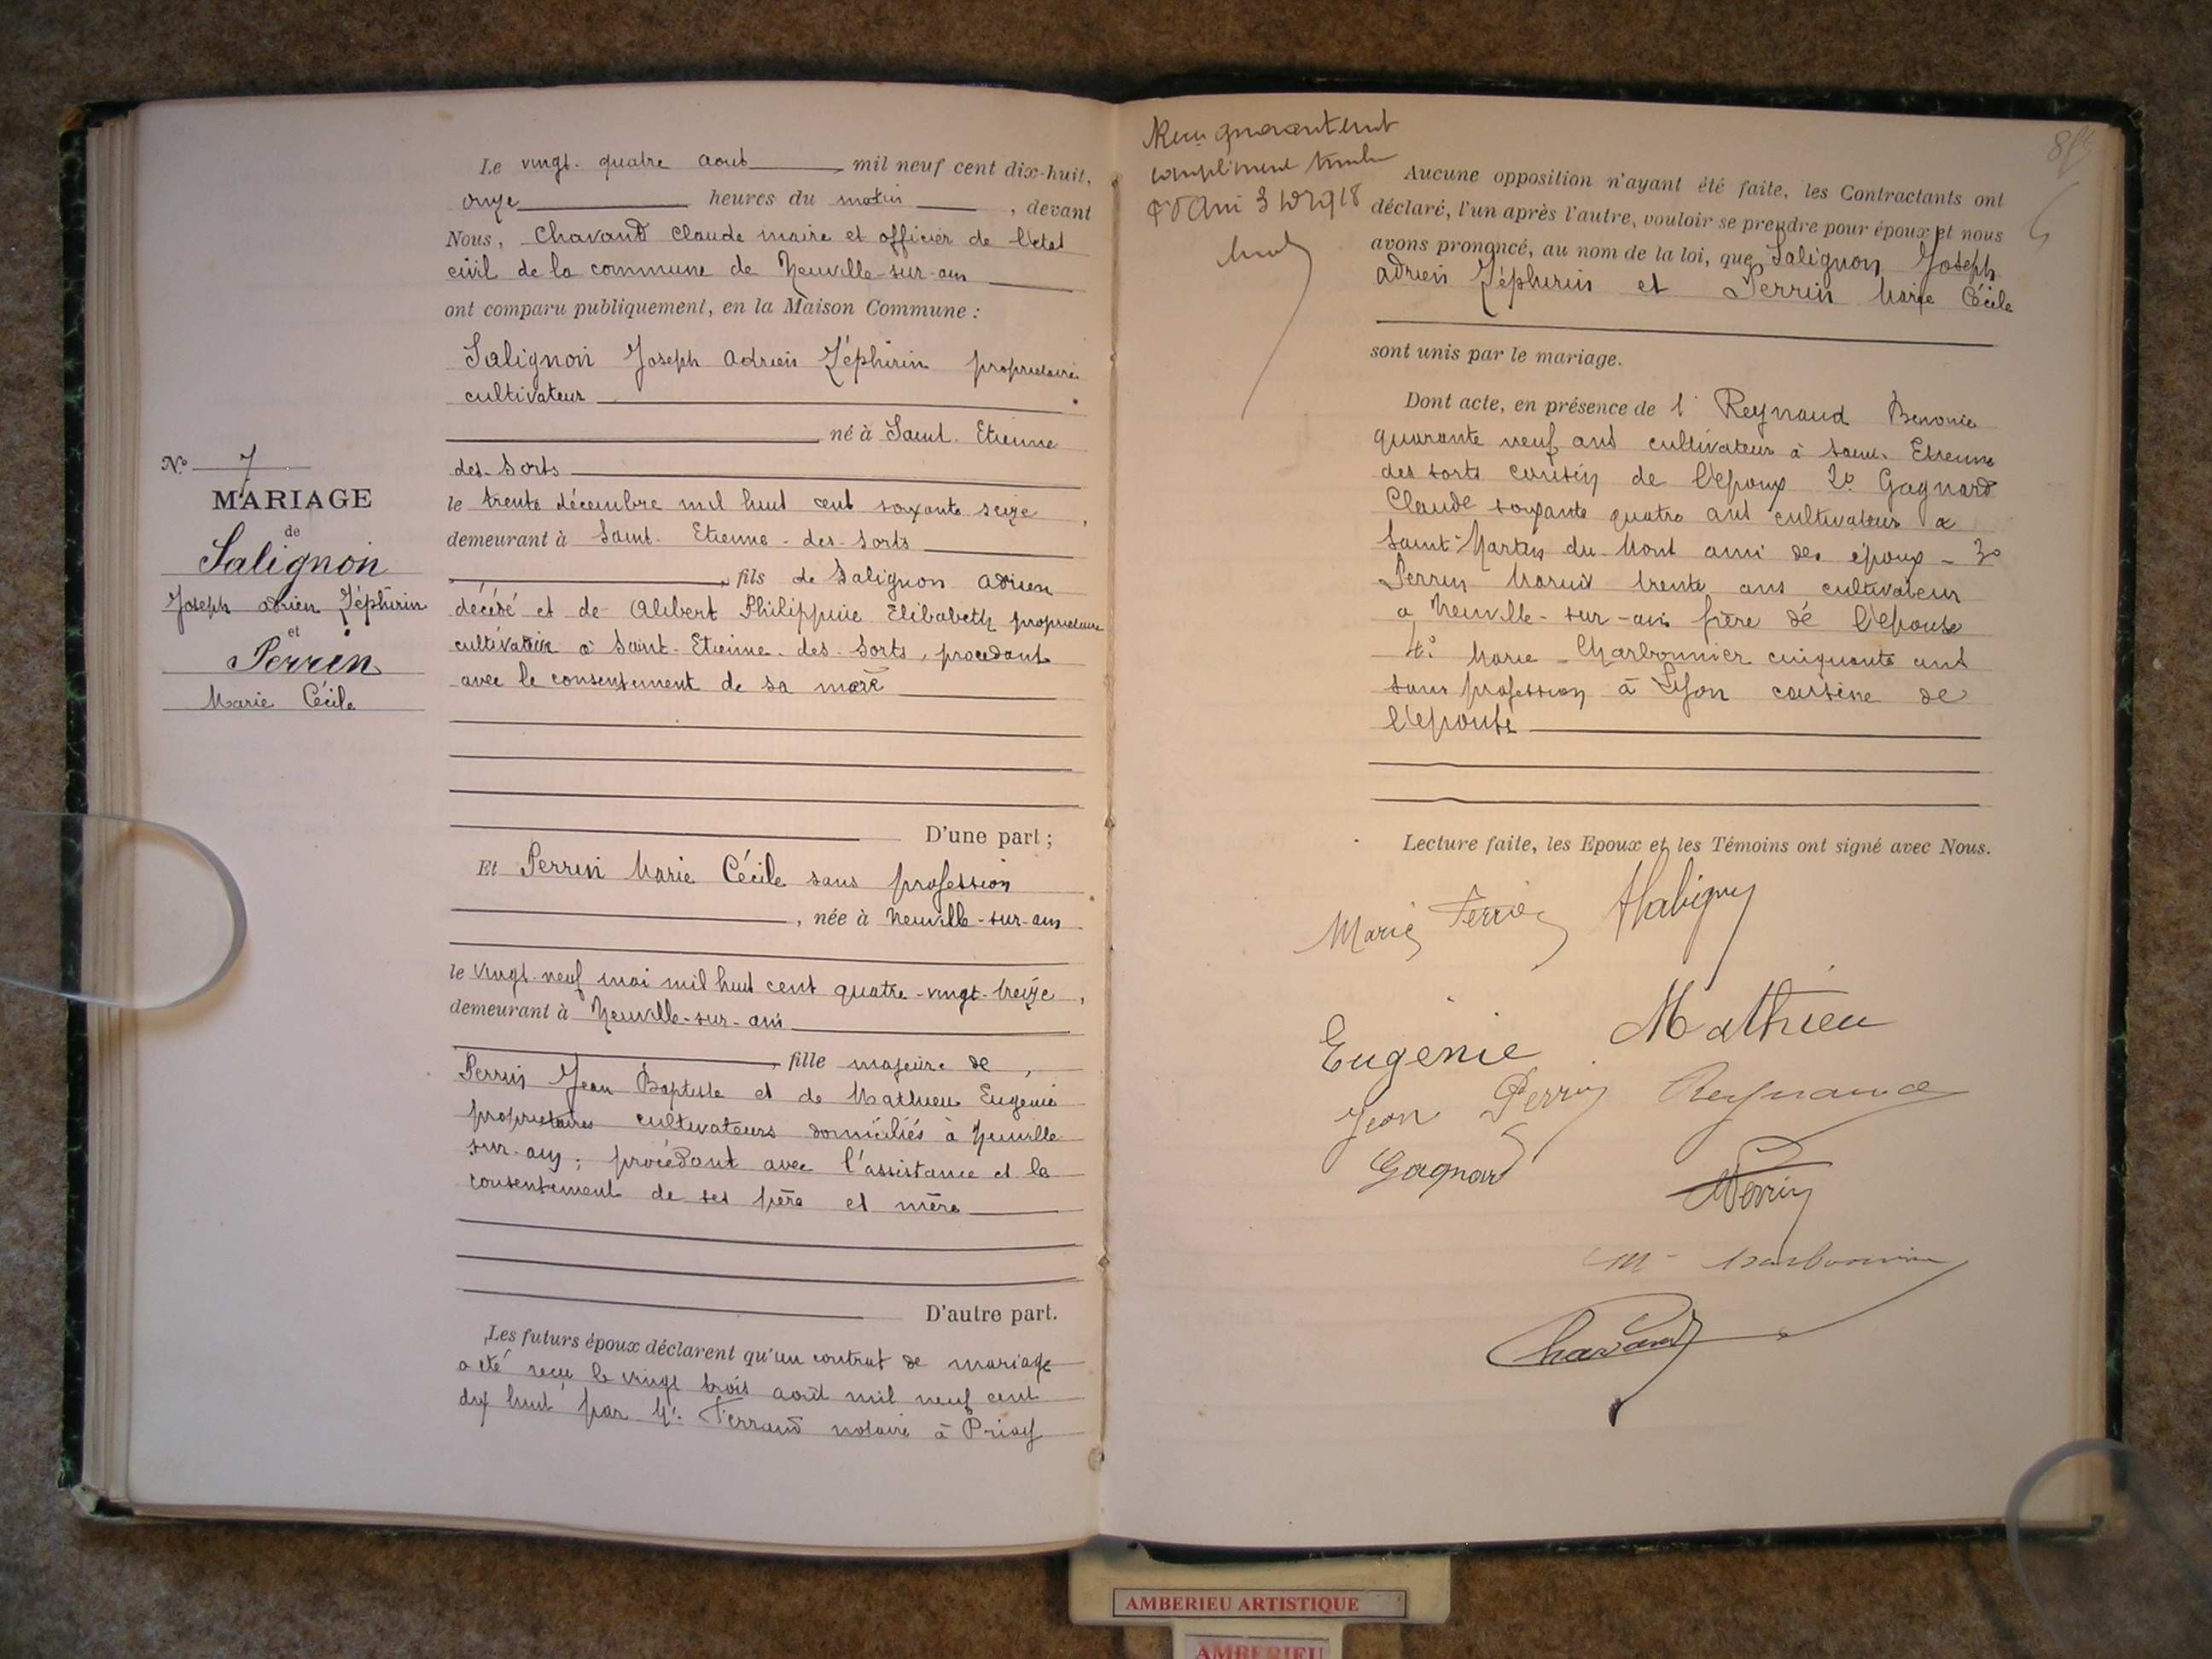 Le vingt-quatre aout mil neuf cent dix-huit,
onze heures du matin, devant
Nous, Chavand Claude maire et officier de l'état
civil de la commune de Neuville-sur-ain
ont comparu publiquement, en la Maison Commune :
Salignon Joseph adrien Zéphirin propriétaire
cultivateur
né à Saint-Etienne
des-Sorts
le trente décembre mil huit cent soixante seize,
demeurant à Saint-Etienne-des-Sorts
, fils de Salignon adrien
décédé et de Alibert Philippine Elisabeth propriétaire
cultivatrice à Saint-Etienne-des-Sorts, procédant
avec le consentement de sa mère
D'une part ;
Et Perrin Marie Cécile sans profession
, née à Neuville-sur-ain
le vingt-neuf mai mil huit cent quatre-vingt-treize,
demeurant à Neuville-sur-ain
fille majeure de,
Perrin Jean Baptiste et de Mathieu Eugenie
propriétaires cultivateurs domiciliés à Neuville
sur-ain ; procédant avec l'assistance et le
consentement de ses père et mère
D'autre part.
Les futurs époux déclarent qu'un contrat de mariage
a été reçu le vingt trois août mil neuf cent
dix huit par Me Ferrand notaire à Priay
N.º 7
MARIAGE
de
Salignon
Joseph adrien Zéphirin
et
Perrin
Marie Cécile
complément timbre
Aucune opposition n'ayant été faite, les Contractants ont
déclaré, l'un après l'autre, vouloir se prendre pour époux et nous
avons prononcé, au nom de la loi, que Salignon Joseph
adrien Zéphirin et Perrin Marie Cécile
sont unis par le mariage.
Dont acte, en présence de 1º Reynaud Benonie
quarante neuf ans cultivateur à Saint-Etienne
des sorts cousin de l'époux 2º Gagnard
Claude soixante quatre ans cultivateur à
Saint-Martin du-Mont ami des époux - 3º
Perrin Marius trente ans cultivateur
a Neuville-sur-ain frère de l'épouse
4º Marie Charbonnier cinquante ans
sans profession à Lyon cousine de
l'épouse
Lecture faite, les Epoux et les Témoins ont signé avec Nous.
Marie Perrin
Eugénie Mathieu
Jean Perrin Reynaud
Gagnard
Perrin
M Charbonnier
Chavand
AMBERIEU ARTISTIQUE
AMBERIEU